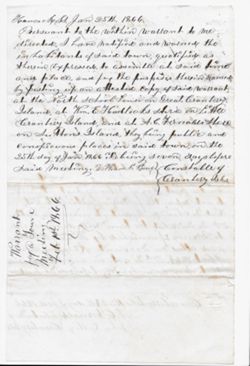 Jan 25th 1866.
Pursuant to the within warrant to me
directed, I have notified and warned the
inhabitants of said town, qualified as
therein expressed to assemble at said time
and place, and for the purposes therein named
by posting up an attested copy of said warrant,
at the North school house on Great Cranberry
Island, at Wm. E. Hadlock's store on Little
Cranberry Island, and at A. C. Fernald's store
on Island, they being public and
conspicuous places in said town, on the
25th day of Jan. 1866 being seven days before
said meeting. Constable of
Cranberry Isles
Warrant
for a Town
Meeting
Feb 1866